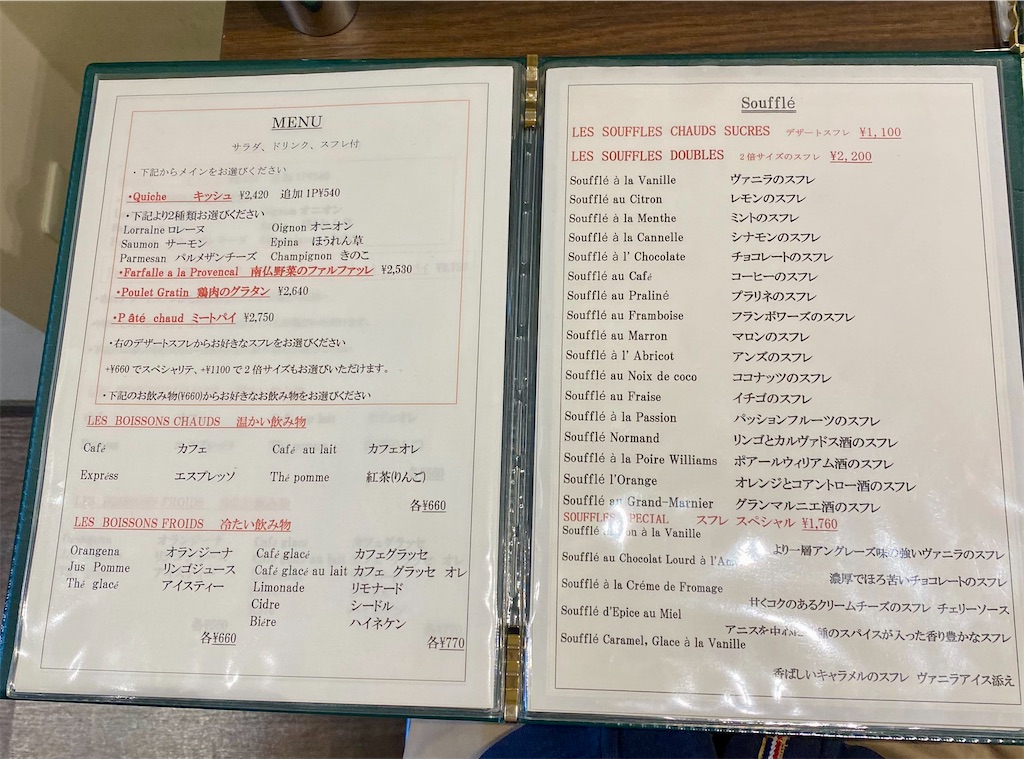 MENU
サラダ、ドリンク、スフレ付
・下記からメインをお選びください
・Quiche キッシュ ¥2,420 追加1P¥540
・下記より2種類お選びください
Lorraine ロレーヌ Oignon オニオン
Saumon サーモン Epina ほうれん草
Parmesan パルメザンチーズ Champignon きのこ
・Farfalle a la Provencal 南仏野菜のファルファッレ ¥2,530
・Poulet Gratin 鶏肉のグラタン ¥2,640
・Pâté chaud ミートパイ ¥2,750
・右のデザートスフレからお好きなスフレをお選びください
+¥660でスペシャリテ、+¥1100で2倍サイズもお選びいただけます。
・下記のお飲み物(¥660)からお好きなお飲み物をお選びください
LES BOISSONS CHAUDS 温かい飲み物
Café カフェ Café au lait カフェオレ
Express エスプレッソ Thé pomme 紅茶(りんご)
各¥660
LES BOISSONS FROIDS 冷たい飲み物
Orangena オランジーナ Café glacé カフェグラッセ
Jus Pomme リンゴジュース Café glacé au lait カフェ グラッセ オレ
Thé glacé アイスティー Limonade リモナード
Cidre シードル
Biére ハイネケン
各¥660 各¥770
Soufflé
LES SOUFFLES CHAUDS SUCRES デザートスフレ ¥1,100
LES SOUFFLES DOUBLES 2倍サイズのスフレ ¥2,200
Soufflé à la Vanille ヴァニラのスフレ
Soufflé au Citron レモンのスフレ
Soufflé à la Menthe ミントのスフレ
Soufflé à la Cannelle シナモンのスフレ
Soufflé à l' Chocolate チョコレートのスフレ
Soufflé au Café コーヒーのスフレ
Soufflé au Praliné プラリネのスフレ
Soufflé au Framboise フランボワーズのスフレ
Soufflé au Marron マロンのスフレ
Soufflé à l' Abricot アンズのスフレ
Soufflé au Noix de coco ココナッツのスフレ
Soufflé au Fraise イチゴのスフレ
Soufflé à la Passion パッションフルーツのスフレ
Soufflé Normand リンゴとカルヴァドス酒のスフレ
Soufflé à la Poire Williams ポアールウィリアム酒のスフレ
Soufflé l'Orange オレンジとコアントロー酒のスフレ
Soufflé au Grand-Marnier グランマルニエ酒のスフレ
SOUFFLES SPECIAL スフレ スペシャル ¥1,760
Soufflé à la Vanille
より一層アングレーズ味の強いヴァニラのスフレ
Soufflé au Chocolat Lourd à l'
濃厚でほろ苦いチョコレートのスフレ
Soufflé à la Créme de Fromage
甘くコクのあるクリームチーズのスフレ チェリーソース
Soufflé d'Epice au Miel
アニスを中心に 種のスパイスが入った香り豊かなスフレ
Soufflé Caramel, Glace à la Vanille
香ばしいキャラメルのスフレ ヴァニラアイス添え